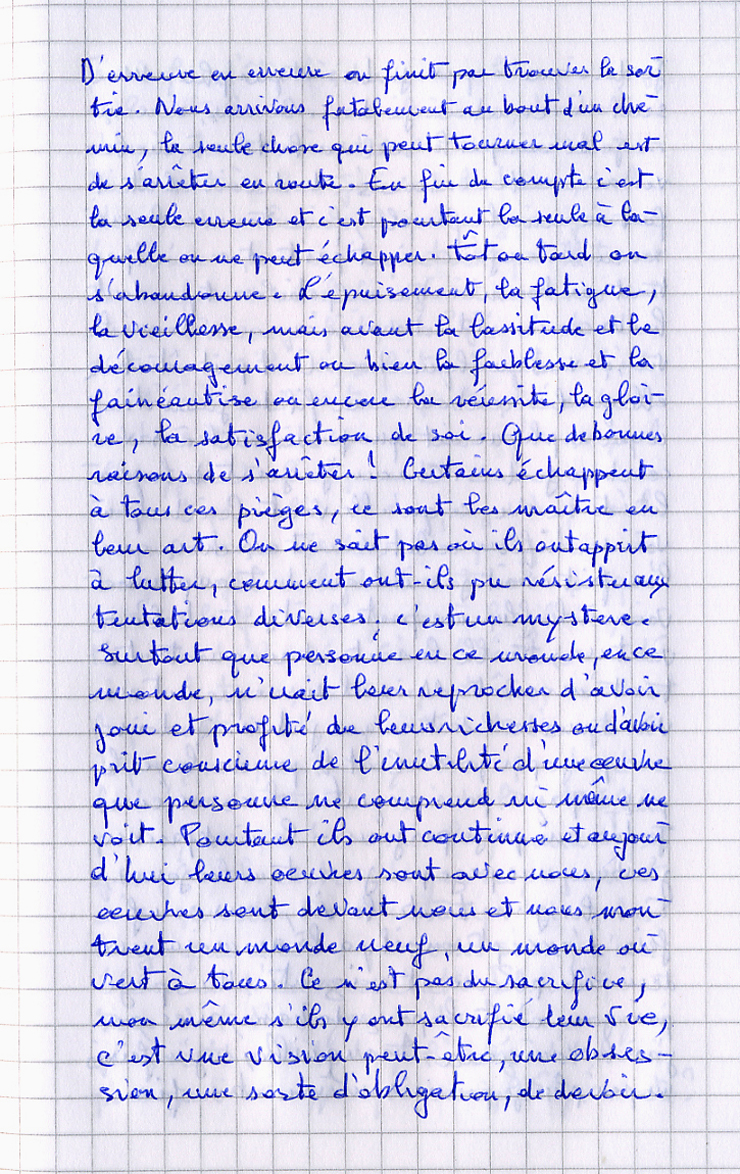 D'erreure en erreure on finit par trouver la sor
tie. Nous arrivons fatalement au bout d'un che
min, la seule chose qui peut tourner mal est
de s'arrêter en route. En fin de compte c'est
la seule erreure et c'est pourtant la seule à la-
quelle on ne peut échapper. Tôt ou tard on
s'abandonne. L'épuisement, la fatigue,
la vieillesse, mais avant la lassitude et le
découragement ou bien la faiblesse et la
fainéantise ou encore la réussite, la gloi-
re, la satisfaction de soi. Que de bonnes
raisons de s'arrêter! Certains échappent
à tous ces pièges, ce sont les maître en
leur art. On ne sait pas où ils ont apprit
à lutter, comment ont-ils pu résister aux
tentations diverses, c'est un mystere.
Surtout que personne en ce monde, en ce
monde, n'irait leur reprocher d'avoir
joui et profité de leurs richesses ou d'avoir
prit conscience de l'inutilité d'une oeuvre
que personne ne comprend ni même ne
voit. Pourtant ils ont continué et aujour
d'hui leurs oeuvres sont avec nous, ces
oeuvres sont devant nous et nous mon
trent un monde neuf, un monde ou
vert à tous. Ce n'est pas du sacrifice,
non même s'ils y ont sacrifié leur vie,
c'est une vision peut-être, une obses-
sion, une sorte d'obligation, de devoir.